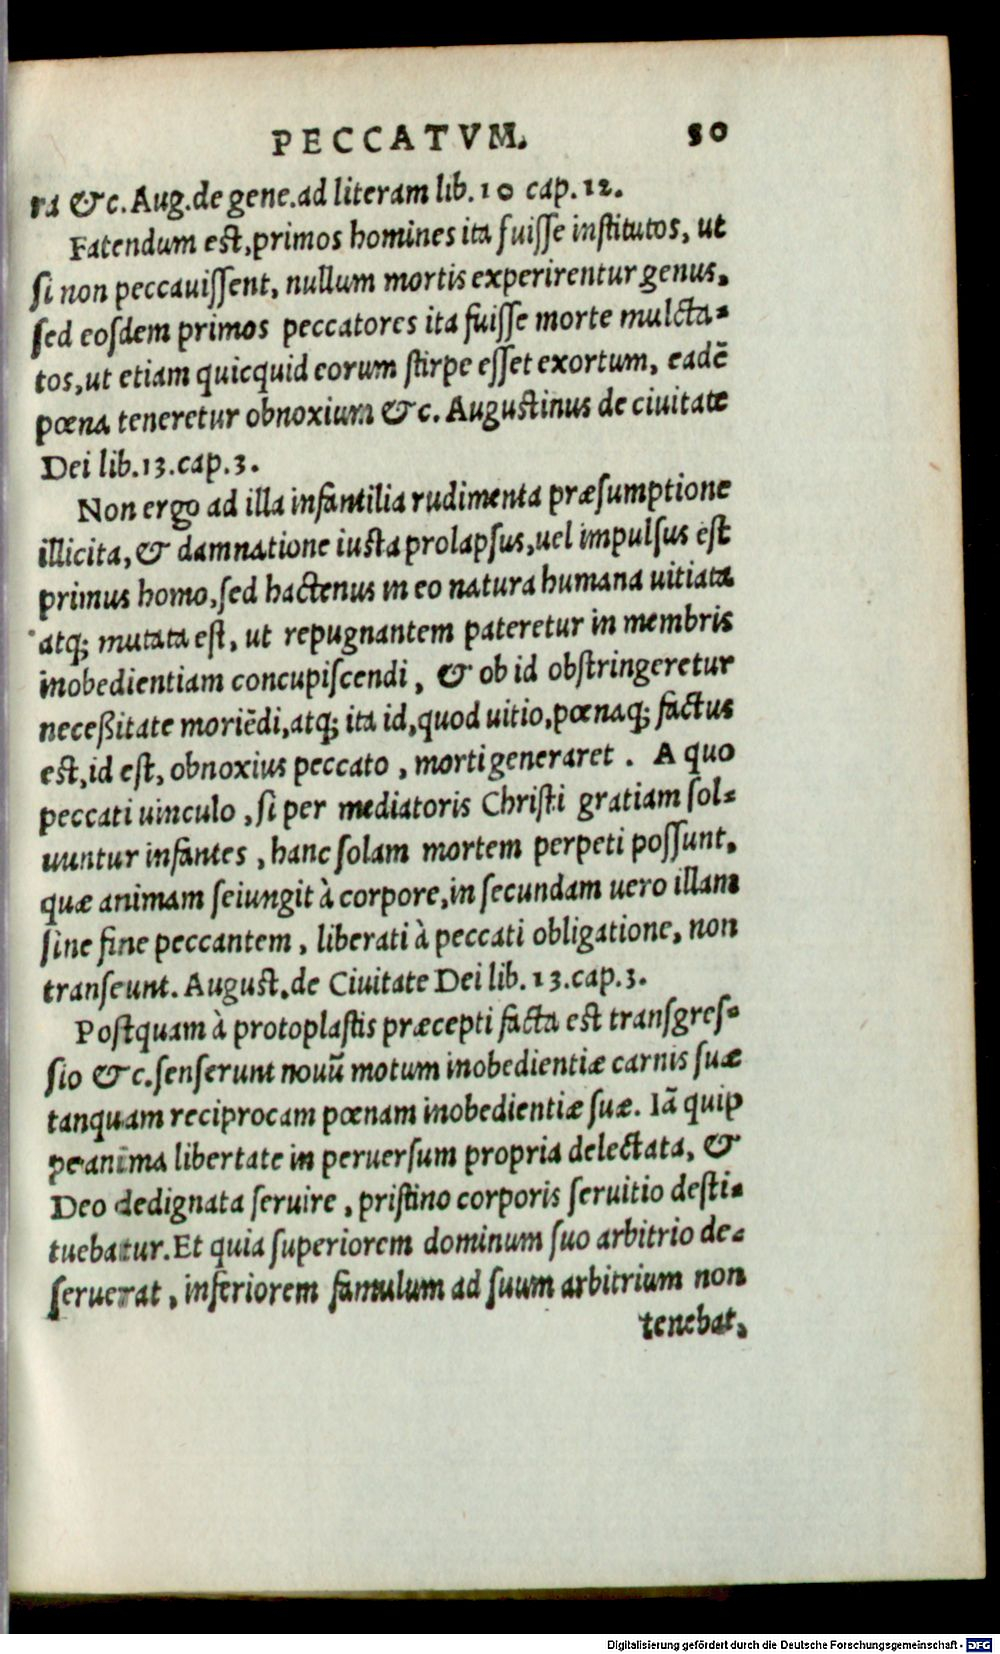 PECCATVM. 50
ra &c. Aug. de gene. ad literam lib. 10 cap. 12.
Fatendum est, primos homines ita fuisse institutos, ut
si non peccauissent, nullum mortis experirentur genus,
sed eosdem primos peccatores ita fuisse morte mulcta-
tos, ut etiam quicquid eorum stirpe esset exortum, eadē
pœna teneretur obnoxium &c. Augustinus de ciuitate
Dei lib. 13. cap. 3.
Non ergo ad illa infantilia rudimenta præsumptione
illicita, & damnatione iusta prolapsus, uel impulsus est
primus homo, sed hactenus in eo natura humana uitiata
atq; mutata est, ut repugnantem pateretur in membris
inobedientiam concupiscendi, & ob id obstringeretur
neceßitate moriēdi, atq; ita id, quod uitio, pœnaq; factus
est, id est, obnoxius peccato, morti generaret. A quo
peccati uinculo, si per mediatoris Christi gratiam sol-
uuntur infantes, hanc solam mortem perpeti possunt,
quæ animam seiungit à corpore, in secundam uero illam
sine fine peccantem, liberati à peccati obligatione, non
transeunt. August. de Ciuitate Dei lib. 13. cap. 3.
Postquam à protoplastis præcepti facta est transgres-
sio &c. senserunt nouū motum inobedientiæ carnis suæ
tanquam reciprocam pœnam inobedientiæ suæ. Iā quip
pe anima libertate in peruersum propria delectata, &
Deo dedignata seruire, pristino corporis seruitio desti-
tuebatur. Et quia superiorem dominum suo arbitrio de-
seruerat, inferiorem famulum ad suum arbitrium non
tenebat,
Digitalisierung gefördert durch die Deutsche Forschungsgemeinschaft - DFG